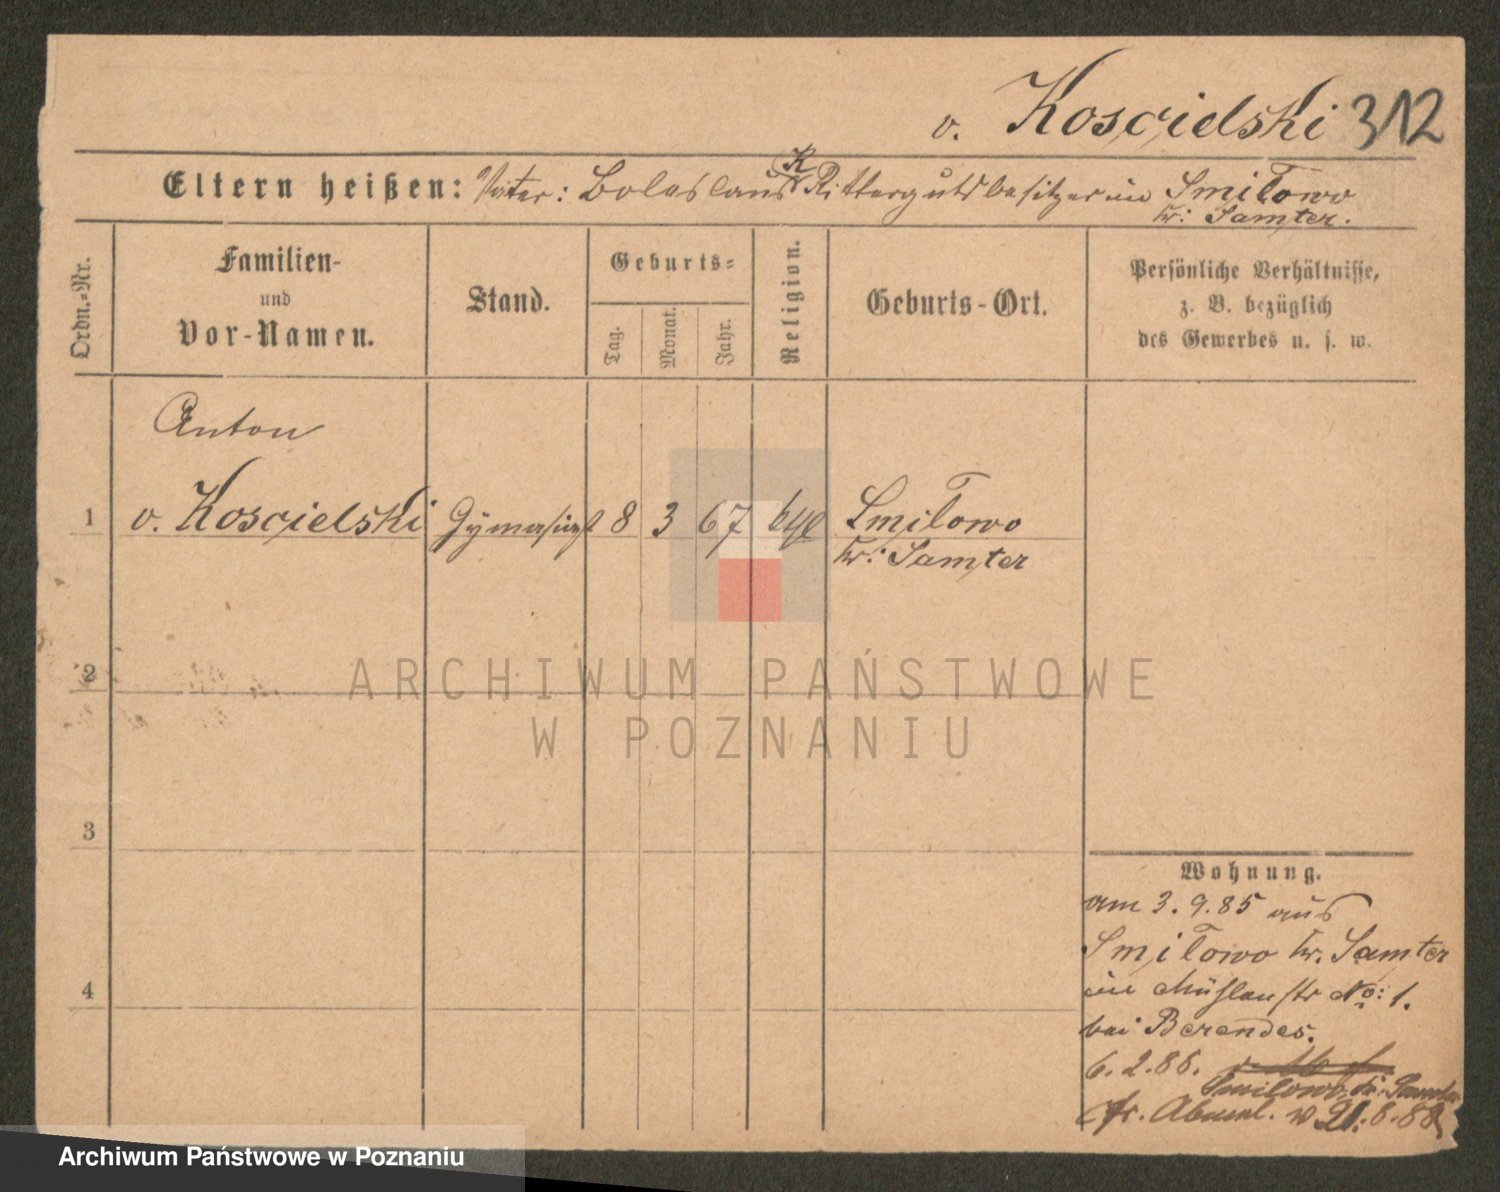 v. Koscielski 312
Eltern heißen: Vater: Boleslaus K Rittergutsbesitzer in Smiłowo
Kr: Samter.
Ordn.-Nr.
Familien-
und
Vor-Namen.
Stand.
Geburts-
Tag.
Monat.
Jahr.
Religion.
Geburts-Ort.
Persönliche Verhältnisse,
z. B. bezüglich
des Gewerbes u. s. w.
Anton
1 v. Koscielski Gymnasiast 8 3 67 Smiłowo
Kr: Samter
2
3
4
Wohnung.
am 3.9.85 aus
Smiłowo Kr. Samter
in Mühlenstr No: 1.
bei Berendes.
6.2.86.
Smilowo, Kr. Samter
Abmel. 21.8.88
ARCHIWUM PAŃSTWOWE
W POZNANIU
Archiwum Państwowe w Poznaniu